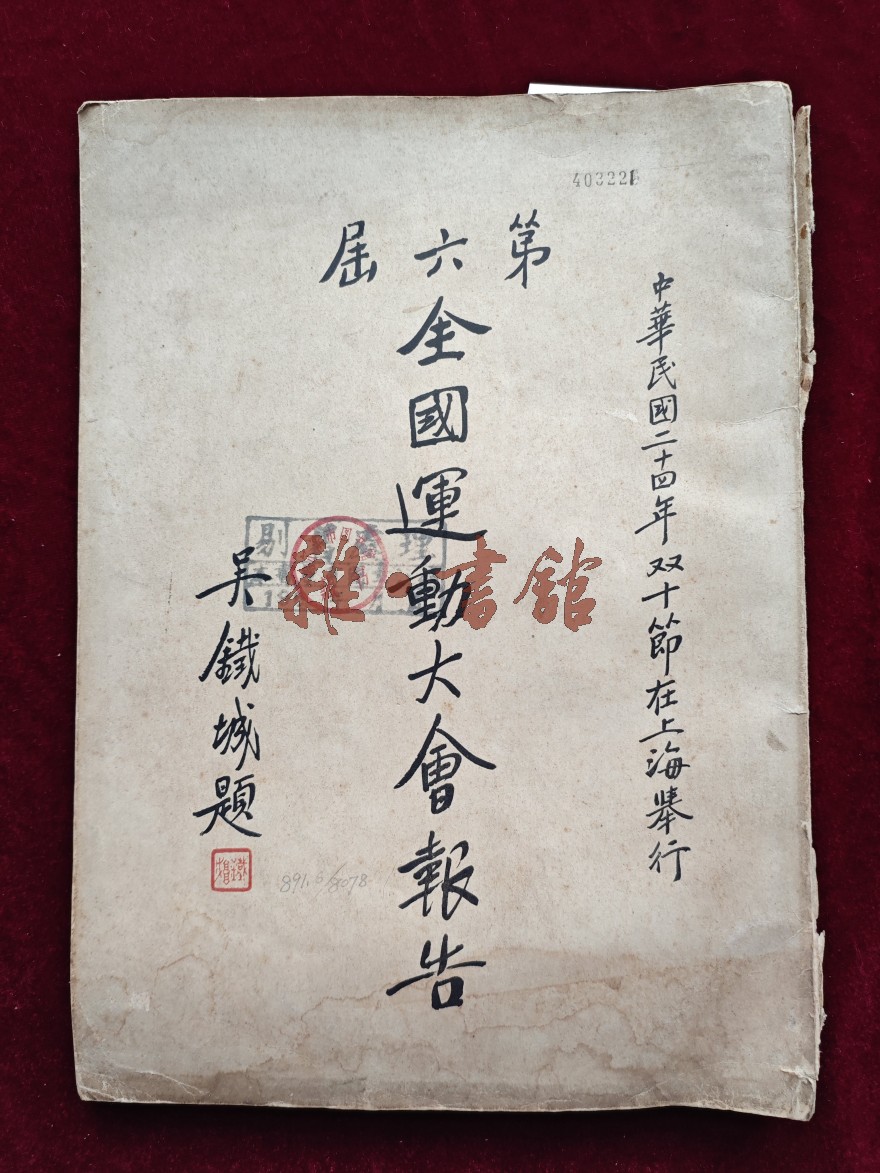 403221
中華民國二十四年双十節在上海舉行
第六屆
全國運動大會報告
吳鐵城題
雜·書館
891.6/8078